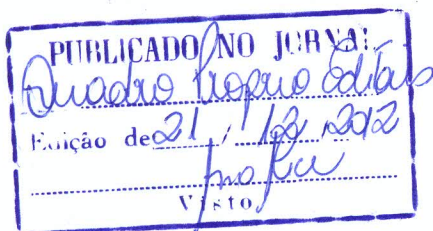 PUBLICADO NO JORNAL
Quadro Próprio Editais
Edição de 21 / 12 2012
Visto